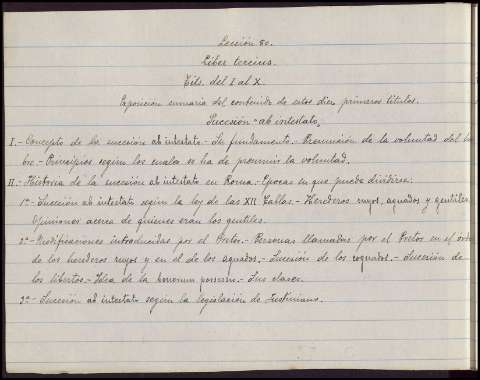 Lección 80.
Liber tercius.
Tits. del I al X.
Exposición sumaria del contenido de estos diez primeros títulos.
Sucesión ab intestato.
I.- Concepto de la sucesión ab intestato.- Su fundamento.- Presunción de la voluntad del
bre.- Principios según los cuales se ha de presumir la voluntad.
II.- Historia de la sucesión ab intestato en Roma.- Épocas en que puede dividirse.
1ª- Sucesión ab intestato según la ley de las XII Tablas.- Herederos suyos, agnados y gentiles.
Opiniones acerca de quienes eran los gentiles.
2ª- Modificaciones introducidas por el Pretor.- Personas llamadas por el Pretor en el orden
de los herederos suyos y en el de los agnados.- Sucesión de los cognados.- Sucesión de
los libertos.- Idea de la bonorum possessio.- Sus clases.
3ª- Sucesión ab intestato según la legislación de Justiniano.